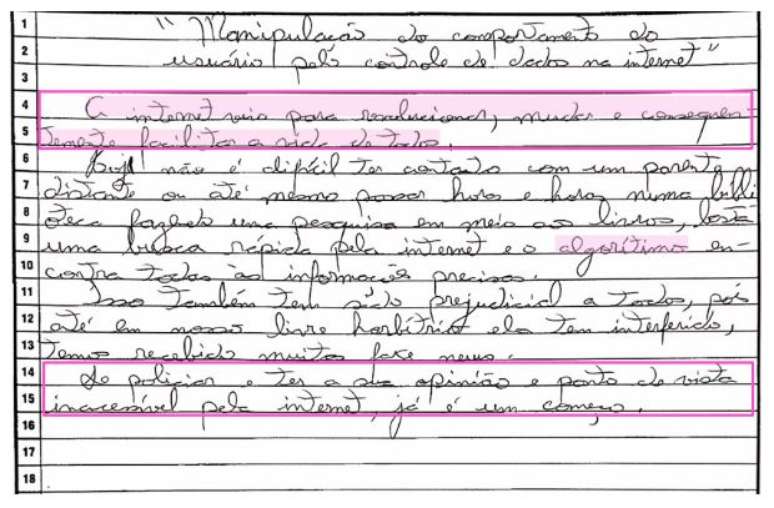 1 "Manipulação do comportamento do
2 usuário pelo controle de dados na internet"
3
4 A internet veio para revolucionar, mudar e consequen
5 temente facilitar a vida de todos.
6 Hoje não é difícil ter contato com um parente
7 distante ou até mesmo passar horas e horas numa bibli
8 oteca fazendo uma pesquisa em meio aos livros, basta
9 uma busca rápida pela internet e o algorítimo en-
10 contra todas as informações precisas.
11 Isso também tem sido prejudicial a todos, pois
12 até em nosso livre harbítrio ela tem interferido,
13 temos recebido muitas faxe news.
14 Se policiar e ter a sua opinião e ponto de vista
15 inacessível pela internet, já é um começo.
16
17
18